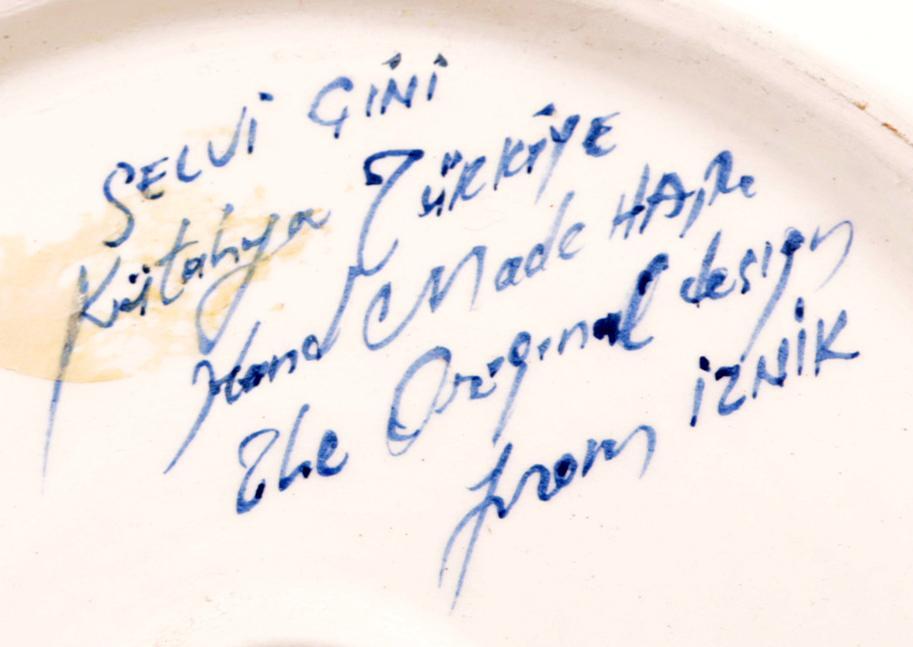 SELVi ÇiNi
Kütahya TüRKiYE
Hand Made
The Original design
from iZNiK